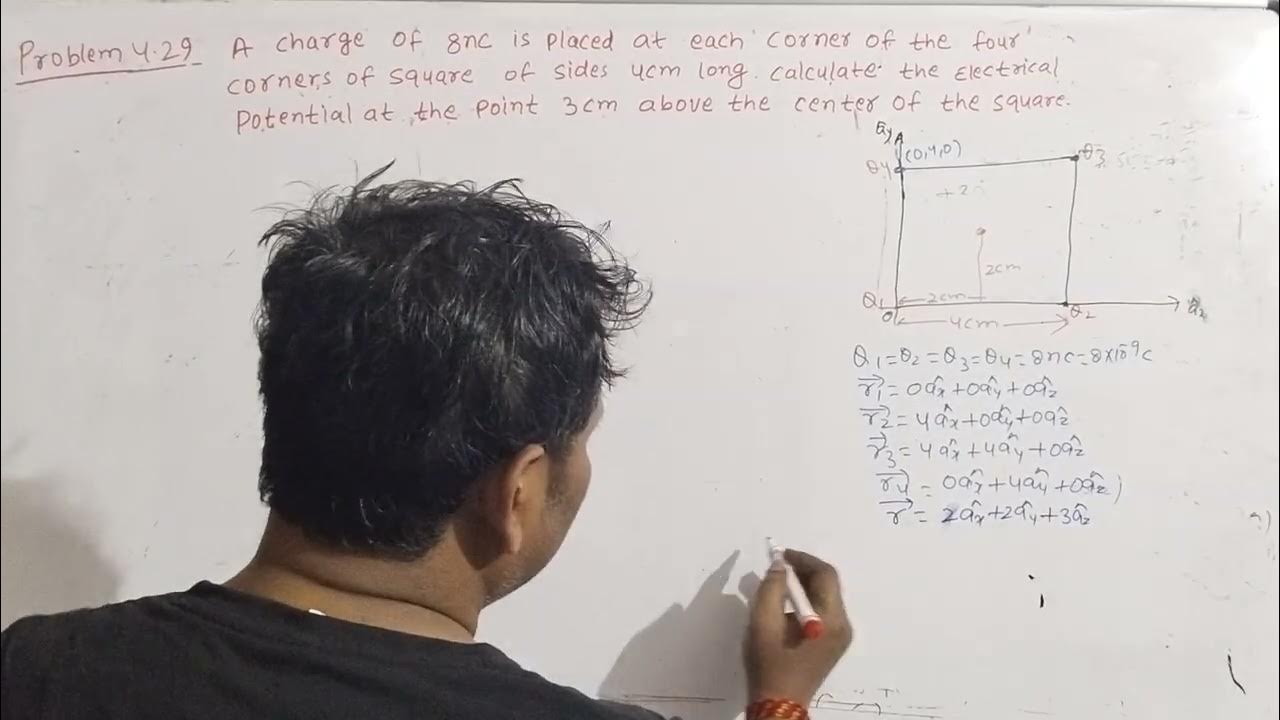 Problem 4.29 A charge of 8nc is placed at each corner of the four
corners of square of sides 4cm long. calculate the Electrical
Potential at the point 3cm above the center of the square.
ây
(0,4,0)
Q4 Q3
+2
2cm
Q1 2cm
0 Q2
4cm
Q1=Q2=Q3=Q4=8nc=8×10⁻⁹c
r⃗1=0âx+0ây+0âz
r⃗2=4âx+0ây+0âz
r⃗3=4âx+4ây+0âz
r⃗4=0âx+4ây+0âz)
r⃗=2âx+2ây+3âz